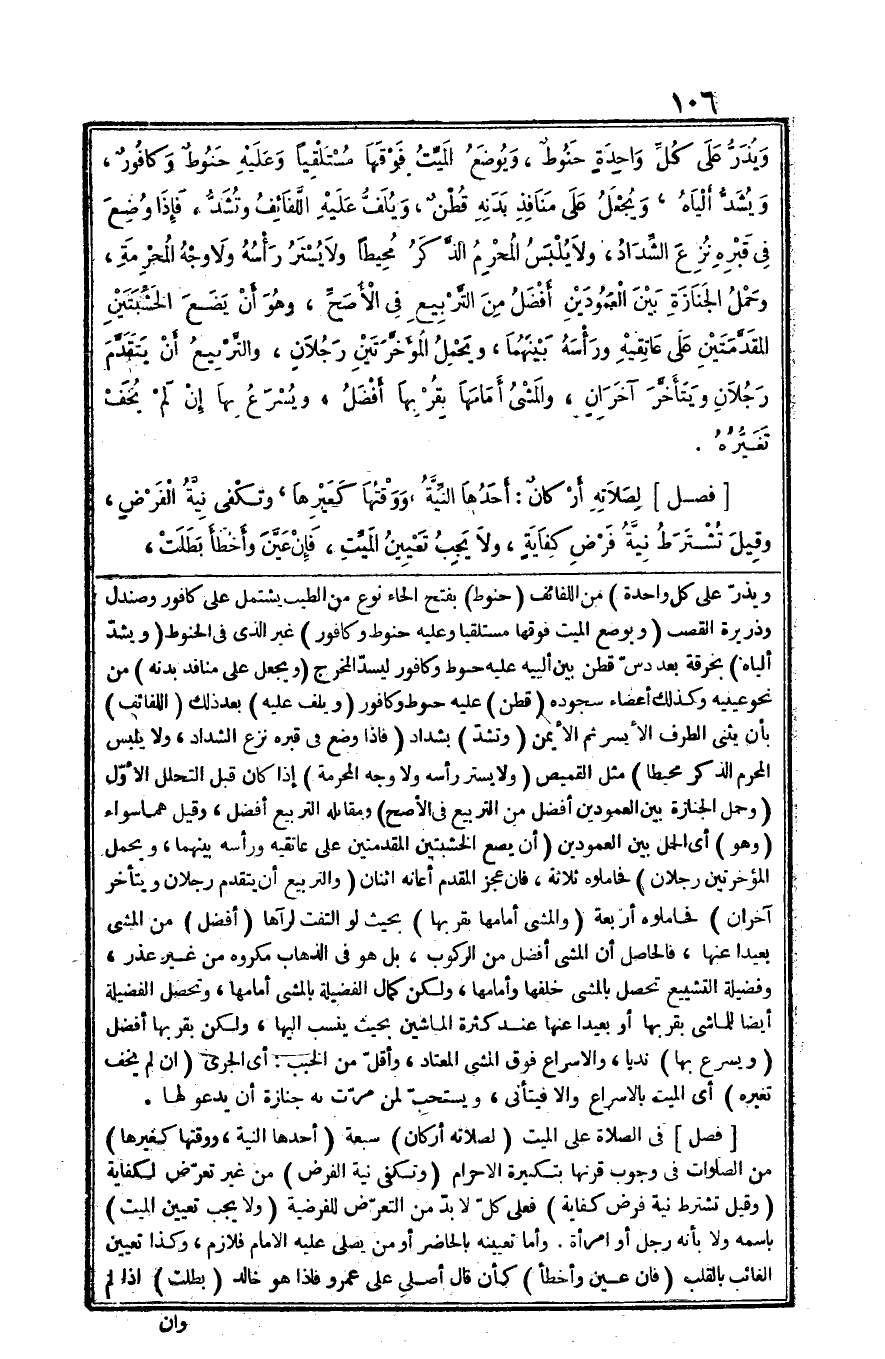 ١٠٦
وَيُذَرُّ عَلَى كُلِّ وَاحِدَةٍ حَنُوطٌ ، وَيُوضَعُ الْمَيِّتُ فَوْقَهَا مُسْتَلْقِياً وَعَلَيْهِ حَنُوطٌ وَكَافُورٌ ،
وَيُشَدُّ أَلْيَاهُ ، وَيُجْعَلُ عَلَى مَنَافِذِ بَدَنِهِ قُطْنٌ ، وَيُلَفُّ عَلَيْهِ اللَّفَائِفُ وَتُشَدُّ ، فَإِذَا وُضِعَ
فِى قَبْرِهِ نُزِعَ الشِّدَادُ ، ولاَ يُلْبَسُ الْمُحْرِمُ الذَّكَرُ مُحِيطاً ولاَ يُسْتَرُ رَأْسُهُ وَلاَ وَجْهُ الْمُحْرِمَةِ ،
وحَمْلُ الْجَنَازَةِ بَيْنَ الْعَمُودَيْنِ أَفْضَلُ مِنَ التَّرْبِيعِ فِى الْأَصَحِّ ، وهُوَ أَنْ يَضَعَ الْخَشَبَتَيْنِ
المُقَدَّمَتَيْنِ عَلَى عَاتِقَيْهِ ورَأْسَهُ بَيْنَهُمَا ، ويَحْمِلُ الْمُؤَخَّرَتَيْنِ رَجُلاَنِ ، والتَّرْبِيعُ أَنْ يَتَقَدَّمَ
رَجُلاَنِ ويَتَأَخَّرَ آخَرَانِ ، والْمَشْىُ أَمَامَهَا بِقُرْبِهَا أَفْضَلُ ، ويُسْرَعُ بِهَا إِنْ لَمْ يُخَفْ
تَغَيُّرُهُ .
[ فصل ] لِصَلاَتِهِ أَرْكَانٌ : أَحَدُهَا النِّيَّةُ ، وَوَقْتُهَا كَغَيْرِهَا ، وتَكْفِى نِيَّةُ الْفَرْضِ ،
وقِيلَ تُشْتَرَطُ نِيَّةُ فَرْضِ كِفَايَةٍ ، ولاَ يَجِبُ تَعْيِينُ الْمَيِّتِ ، فَإِنْ عَيَّنَ وأَخْطَأَ بَطَلَتْ ،
ويذرّ على كل واحدة ) من اللفائف ( حنوط ) بفتح الحاء نوع من الطيب يشتمل على كافور وصندل
وذريرة القصب ( ويوضع الميت فوقها مستلقيا وعليه حنوط وكافور ) غير الذى فى الحنوط ( ويشدّ
ألياه ) بخرقة بعد دسّ قطن بين ألييه عليه حنوط وكافور ليسدّ المخرج ( ويجعل على منافذ بدنه ) من
نحو عينيه وكذلك أعضاء سجوده ( قطن ) عليه حنوط وكافور ( ويلف عليه ) بعد ذلك ( اللفائف )
بأن يثنى الطرف الأيسر ثم الأيمن ( وتشدّ ) بشداد ( فاذا وضع فى قبره نزع الشداد ، ولا يلبس
المحرم الذكر محيطا ) مثل القميص ( ولا يستر رأسه ولا وجه المحرمة ) إذا كان قبل التحلل الأوّل
( وحمل الجنازة بين العمودين أفضل من التربيع فى الأصح ) ومقابله التربيع أفضل ، وقيل هما سواء
( وهو ) أى الحمل بين العمودين ( أن يضع الخشبتين المقدمتين على عاتقيه ورأسه بينهما ، ويحمل
المؤخرتين رجلان ) فحاملوه ثلاثة ، فان عجز المقدم أعانه اثنان ( والتربيع أن يتقدم رجلان ويتأخر
آخران ) فحاملوه أربعة ( والمشى أمامها بقربها ) بحيث لو التفت لرآها ( أفضل ) من المشى
بعيدا عنها ، فالحاصل أن المشى أفضل من الركوب ، بل هو فى الذهاب مكروه من غير عذر ،
وفضيلة التشييع تحصل بالمشى خلفها وأمامها ، ولكن كمال الفضيلة بالمشى أمامها ، وتحصل الفضيلة
أيضا للماشى بقربها أو بعيدا عنها عند كثرة الماشين بحيث ينسب اليها ، ولكن بقربها أفضل
( ويسرع بها ) ندبا ، والاسراع فوق المشى المعتاد ، وأقلّ من الخبب : أى الجرى ( ان لم يخف
تغيره ) أى الميت بالاسراع والا فيتأنى ، ويستحبّ لمن مرّت به جنازة أن يدعو لها .
[ فصل ] فى الصلاة على الميت ( لصلاته أركان ) سبعة ( أحدها النية ، ووقتها كغيرها )
من الصلوات فى وجوب قرنها بتكبيرة الاحرام ( وتكفى نية الفرض ) من غير تعرّض لكفاية
( وقيل تشترط نية فرض كفاية ) فعلى كلّ لا بدّ من التعرّض للفرضية ( ولا يجب تعيين الميت )
باسمه ولا بأنه رجل أو امرأة . وأما تعيينه بالحاضر أو من يصلى عليه الامام فلازم ، وكذا تعيين
الغائب بالقلب ( فان عين وأخطأ ) كأن قال أصلى على عمرو فاذا هو خالد ( بطلت ) اذا لم
وان